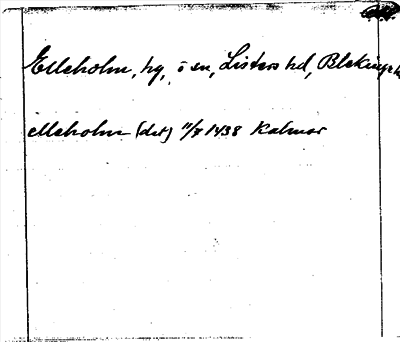 Elleholm, hg, ö sn, Listers hd, Blekinge
elleholm (det) 11/8 1438 Kalmar